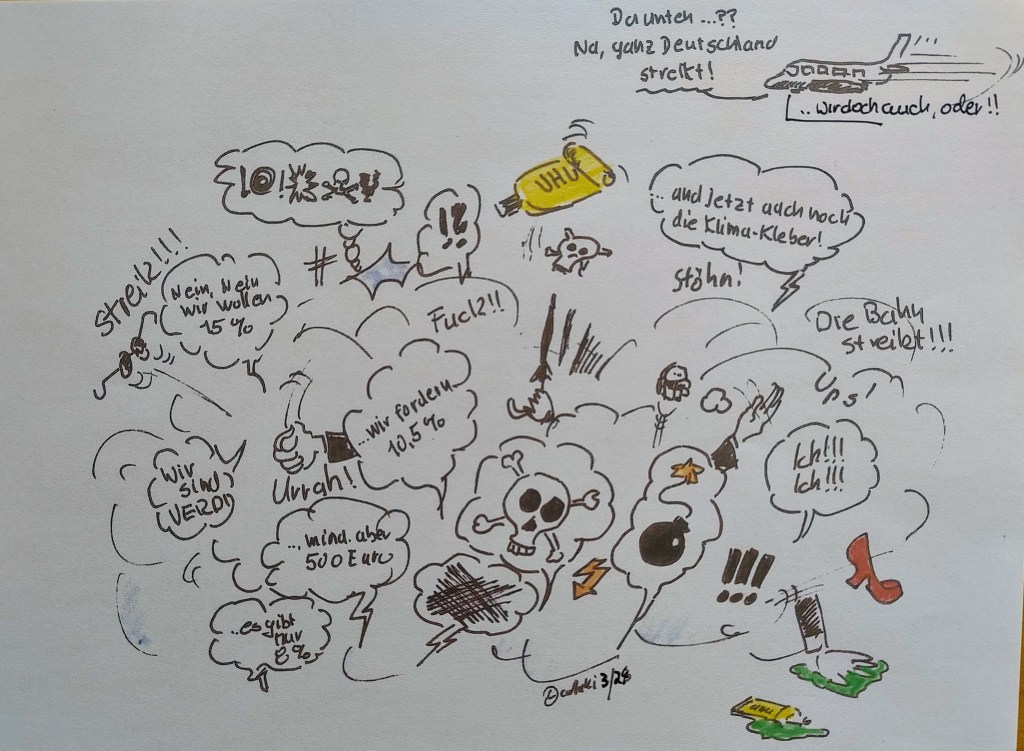 Da unten ...??
Na, ganz Deutschland
streikt!
... wir doch auch, oder!!
!?
UHU
... und jetzt auch noch
die Klima-Kleber!
stöhn!
Streik!!!
Nein, Nein
wir wollen
15%
#
Fuck!!
Die Bahn
streikt!!!
Ups!
... wir fordern
10,5%
Wir
sind
VERDI
Urrah!
Ich!!!
Ich!!!
... mind. aber
500 Euro
!!!
... es gibt
nur
8%
3/28
UHU